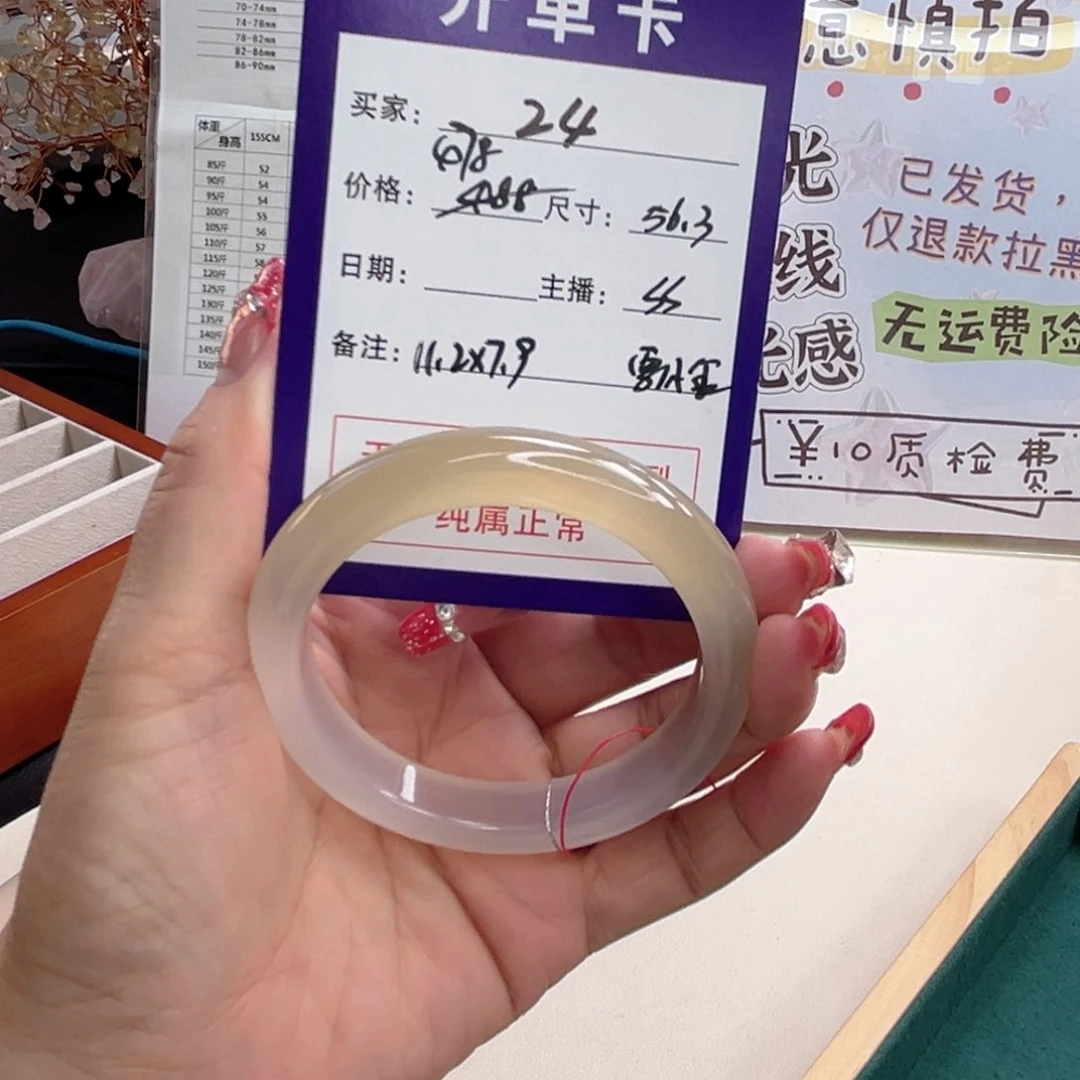 70-74mm
74-78mm
78-82mm
82-86mm
86-90mm
体重
身高
155CM
85斤 52
90斤 54
95斤 54
100斤 55
105斤 56
110斤 57
115斤 58
120斤
125斤
130斤
135斤
140斤
145斤
开单卡
买家： 24
678
价格： 488 尺寸： 56.3
日期： 主播： SS
备注： 11.2x7.9
纯属正常
意慎拍
光
线
光感
已发货，
仅退款拉黑
无运费险
￥10质检费